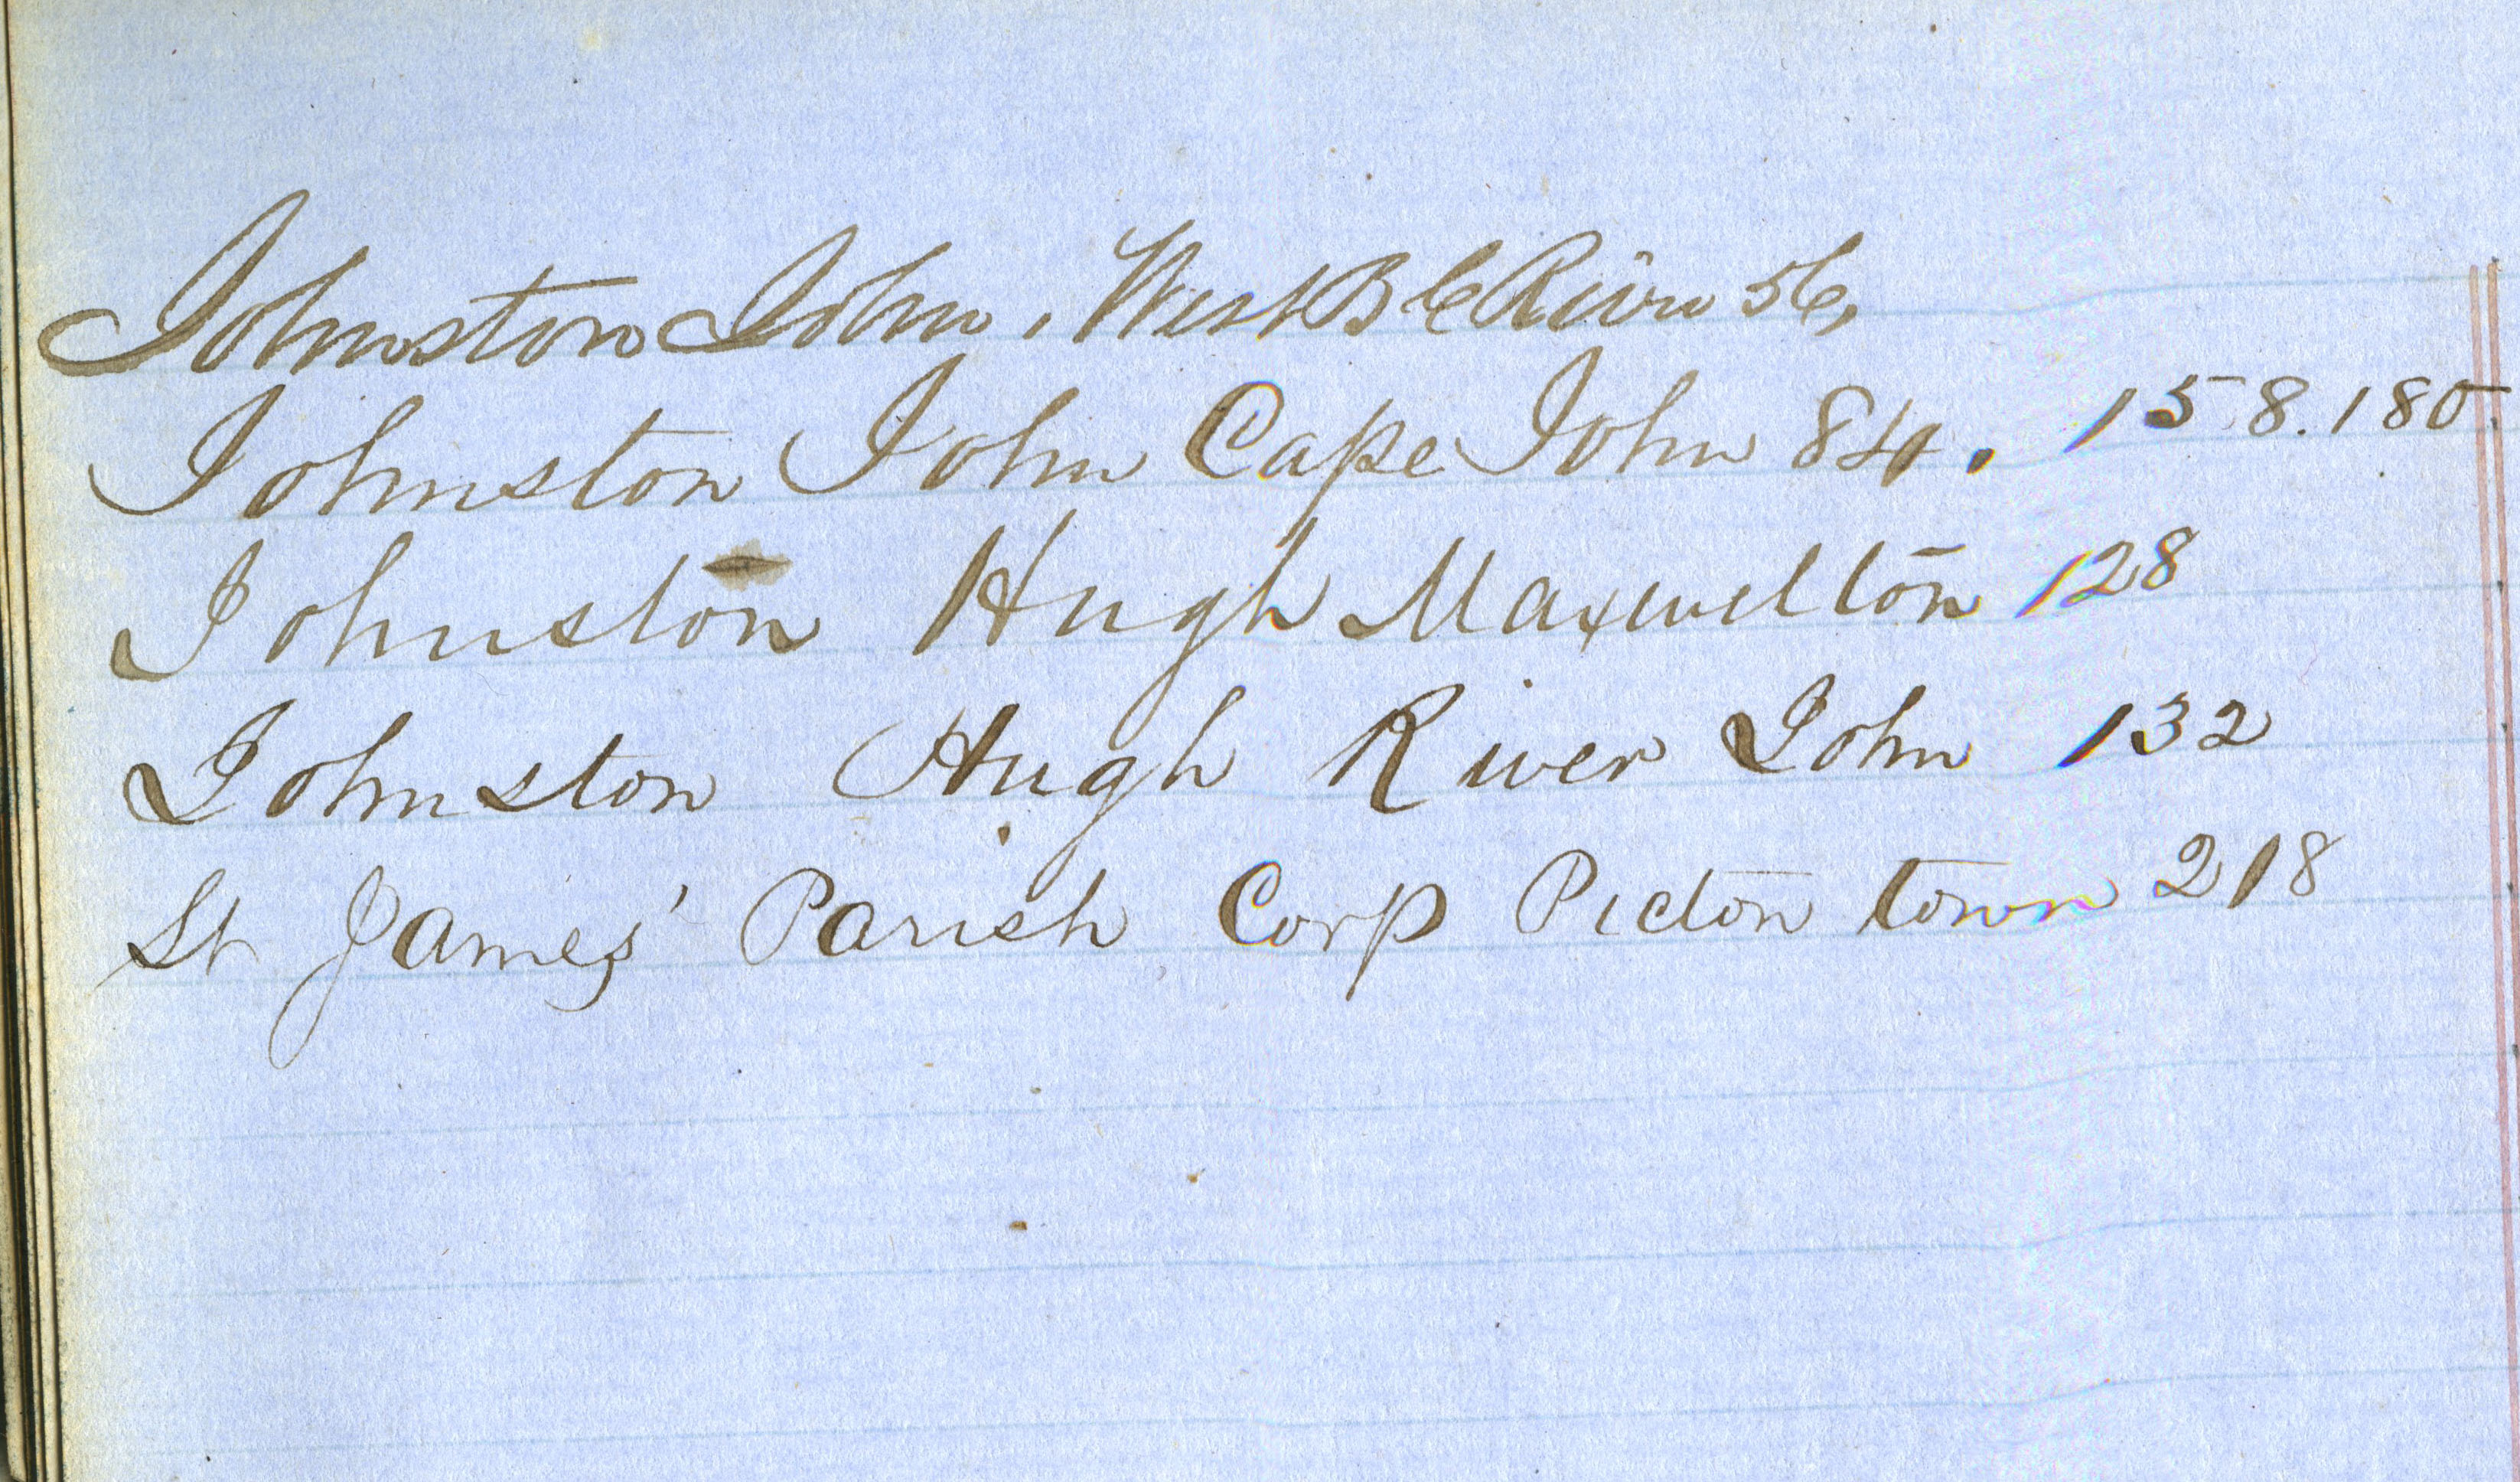 Johnston John, West B E River 56,
Johnston John Cape John 84. 158. 180.
Johnston Hugh Maxwelton 128
Johnston Hugh River John 132
St James' Parish Corp Pictou town 218